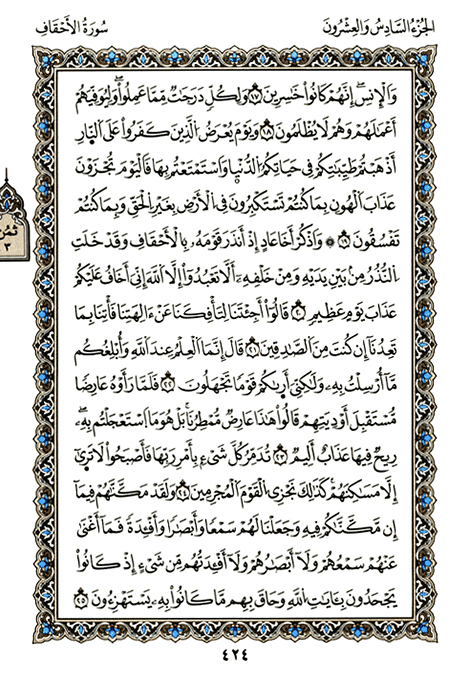 الجزء السادس والعشرون
سورة الأحقاف
وَالْإِنسِ إِنَّهُمْ كَانُوا خَسِرِينَ ١٧ وَلِكُلٍّ دَرَجَتٌ مِّمَّا عَمِلُوا وَلِنُوَفِّيَهُمْ
أَعْمَلَهُمْ وَهُمْ لَا يُظْلَمُونَ ١٨ وَيَوْمَ يُعْرَضُ الَّذِينَ كَفَرُوا عَلَى النَّارِ
أَذْهَبْتُمْ طَيِّبَتِكُمْ فِي حَيَاتِكُمُ الدُّنْيَا وَاسْتَمْتَعْتُم بِهَا فَالْيَوْمَ تُجْزَوْنَ
عَذَابَ الْهُونِ بِمَا كُنتُمْ تَسْتَكْبِرُونَ فِي الْأَرْضِ بِغَيْرِ الْحَقِّ وَبِمَا كُنتُمْ
تَفْسُقُونَ ١٩ ۞ وَاذْكُرْ أَخَا عَادٍ إِذْ أَنذَرَ قَوْمَهُ بِالْأَحْقَافِ وَقَدْ خَلَتِ
النُّذُرُ مِنْ بَيْنِ يَدَيْهِ وَمِنْ خَلْفِهِ أَلَّا تَعْبُدُوا إِلَّا اللَّهَ إِنِّي أَخَافُ عَلَيْكُمْ
عَذَابَ يَوْمٍ عَظِيمٍ ٢٠ قَالُوا أَجِئْتَنَا لِتَأْفِكَنَا عَنْ ءَالِهَتِنَا فَأْتِنَا بِمَا
تَعِدُنَا إِن كُنتَ مِنَ الصَّدِقِينَ ٢١ قَالَ إِنَّمَا الْعِلْمُ عِندَ اللَّهِ وَأُبَلِّغُكُم
مَّا أُرْسِلْتُ بِهِ وَلَكِنِّي أَرَىكُمْ قَوْمًا تَجْهَلُونَ ٢٢ فَلَمَّا رَأَوْهُ عَارِضًا
مُّسْتَقْبِلَ أَوْدِيَتِهِمْ قَالُوا هَذَا عَارِضٌ مُّمْطِرُنَا بَلْ هُوَ مَا اسْتَعْجَلْتُم بِهِ
رِيحٌ فِيهَا عَذَابٌ أَلِيمٌ ٢٣ تُدَمِّرُ كُلَّ شَيْءٍ بِأَمْرِ رَبِّهَا فَأَصْبَحُوا لَا تَرَى
إِلَّا مَسَكِنَهُمْ كَذَلِكَ نَجْزِي الْقَوْمَ الْمُجْرِمِينَ ٢٤ وَلَقَدْ مَكَّنَّهُمْ فِيمَا
إِن مَّكَّنَّكُمْ فِيهِ وَجَعَلْنَا لَهُمْ سَمْعًا وَأَبْصَرًا وَأَفْـِٔدَةً فَمَا أَغْنَى
عَنْهُمْ سَمْعُهُمْ وَلَا أَبْصَرُهُمْ وَلَا أَفْـِٔدَتُهُم مِّن شَيْءٍ إِذْ كَانُوا
يَجْحَدُونَ بِـَٔايَتِ اللَّهِ وَحَاقَ بِهِم مَّا كَانُوا بِهِ يَسْتَهْزِءُونَ ٢٥
ثمن
٣
٤٢٤